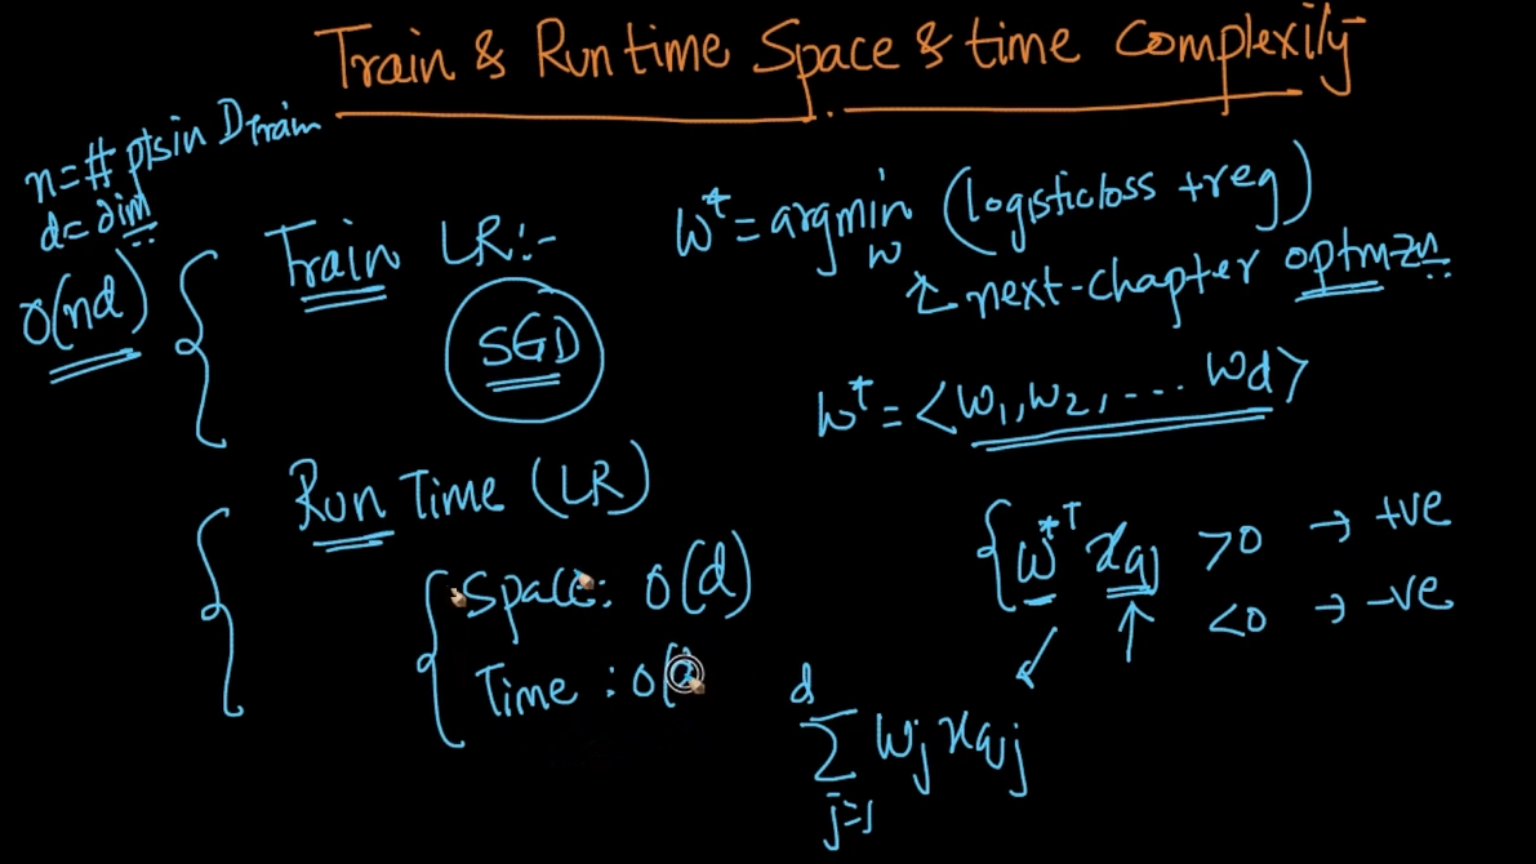 Train & Run time Space & time Complexity
n = # pts in Dtrain
d = dim
O(nd)
Train LR:-
SGD
w* = argmin (logistic loss + reg)
w
next-chapter optmzn
w* = <w1, w2, .... wd>
Run Time (LR)
Space: O(d)
Time : O(
{w*T xq >0 → +ve
<0 → -ve
d
Σ wj xqj
j=1